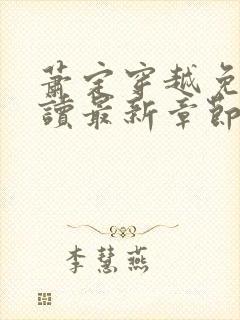 蕭定穿越免
讀最新章節
李慧燕